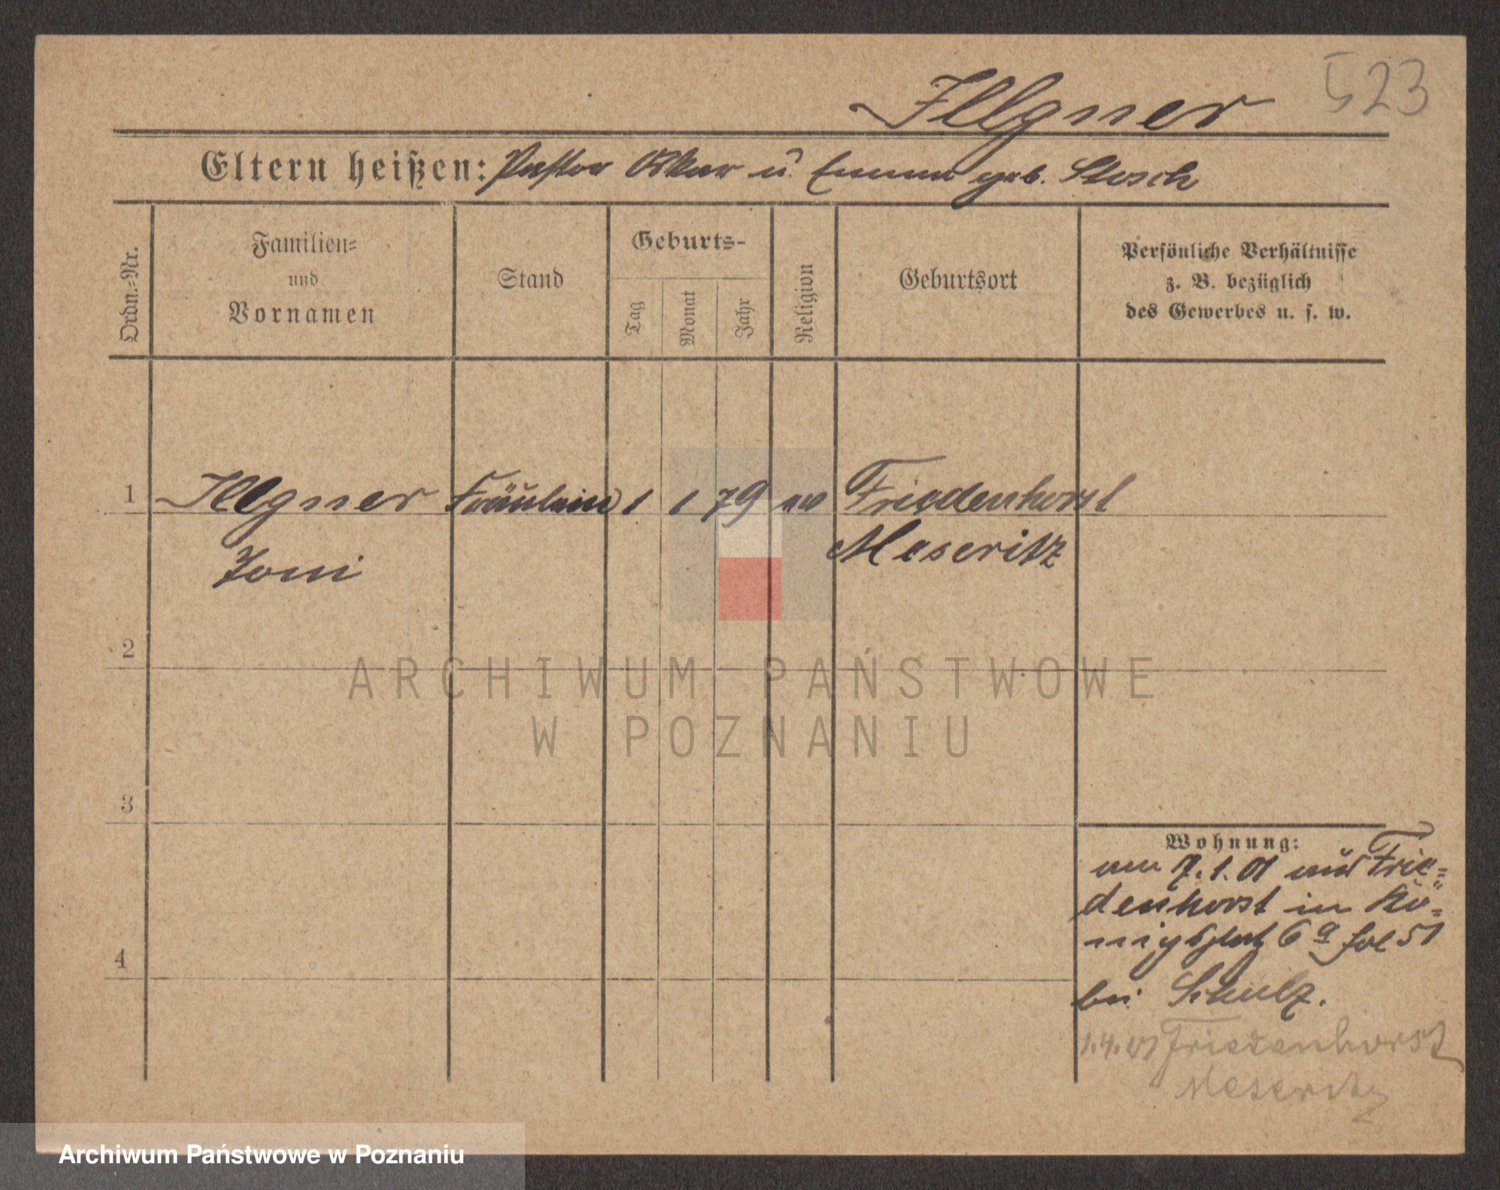 Illgner 523
Eltern heißen: Pastor Oskar u. Emma geb. Stosch
Ordn.-Nr.
Familien-
und
Vornamen
Stand
Geburts-
Tag
Monat
Jahr
Religion
Geburtsort
Persönliche Verhältnisse
z. B. bezüglich
des Gewerbes u. s. w.
1 Illgner Fräulein 1 1 79 ev Friedenhorst
Toni Meseritz
2
ARCHIWUM PAŃSTWOWE
W POZNANIU
3
4
Wohnung:
am 7.1.01 aus Frie=
denhorst in Kö=
nigsplatz 6a fol 51
bei Schulz.
1.4.01 Friedenhorst
Meseritz
Archiwum Państwowe w Poznaniu